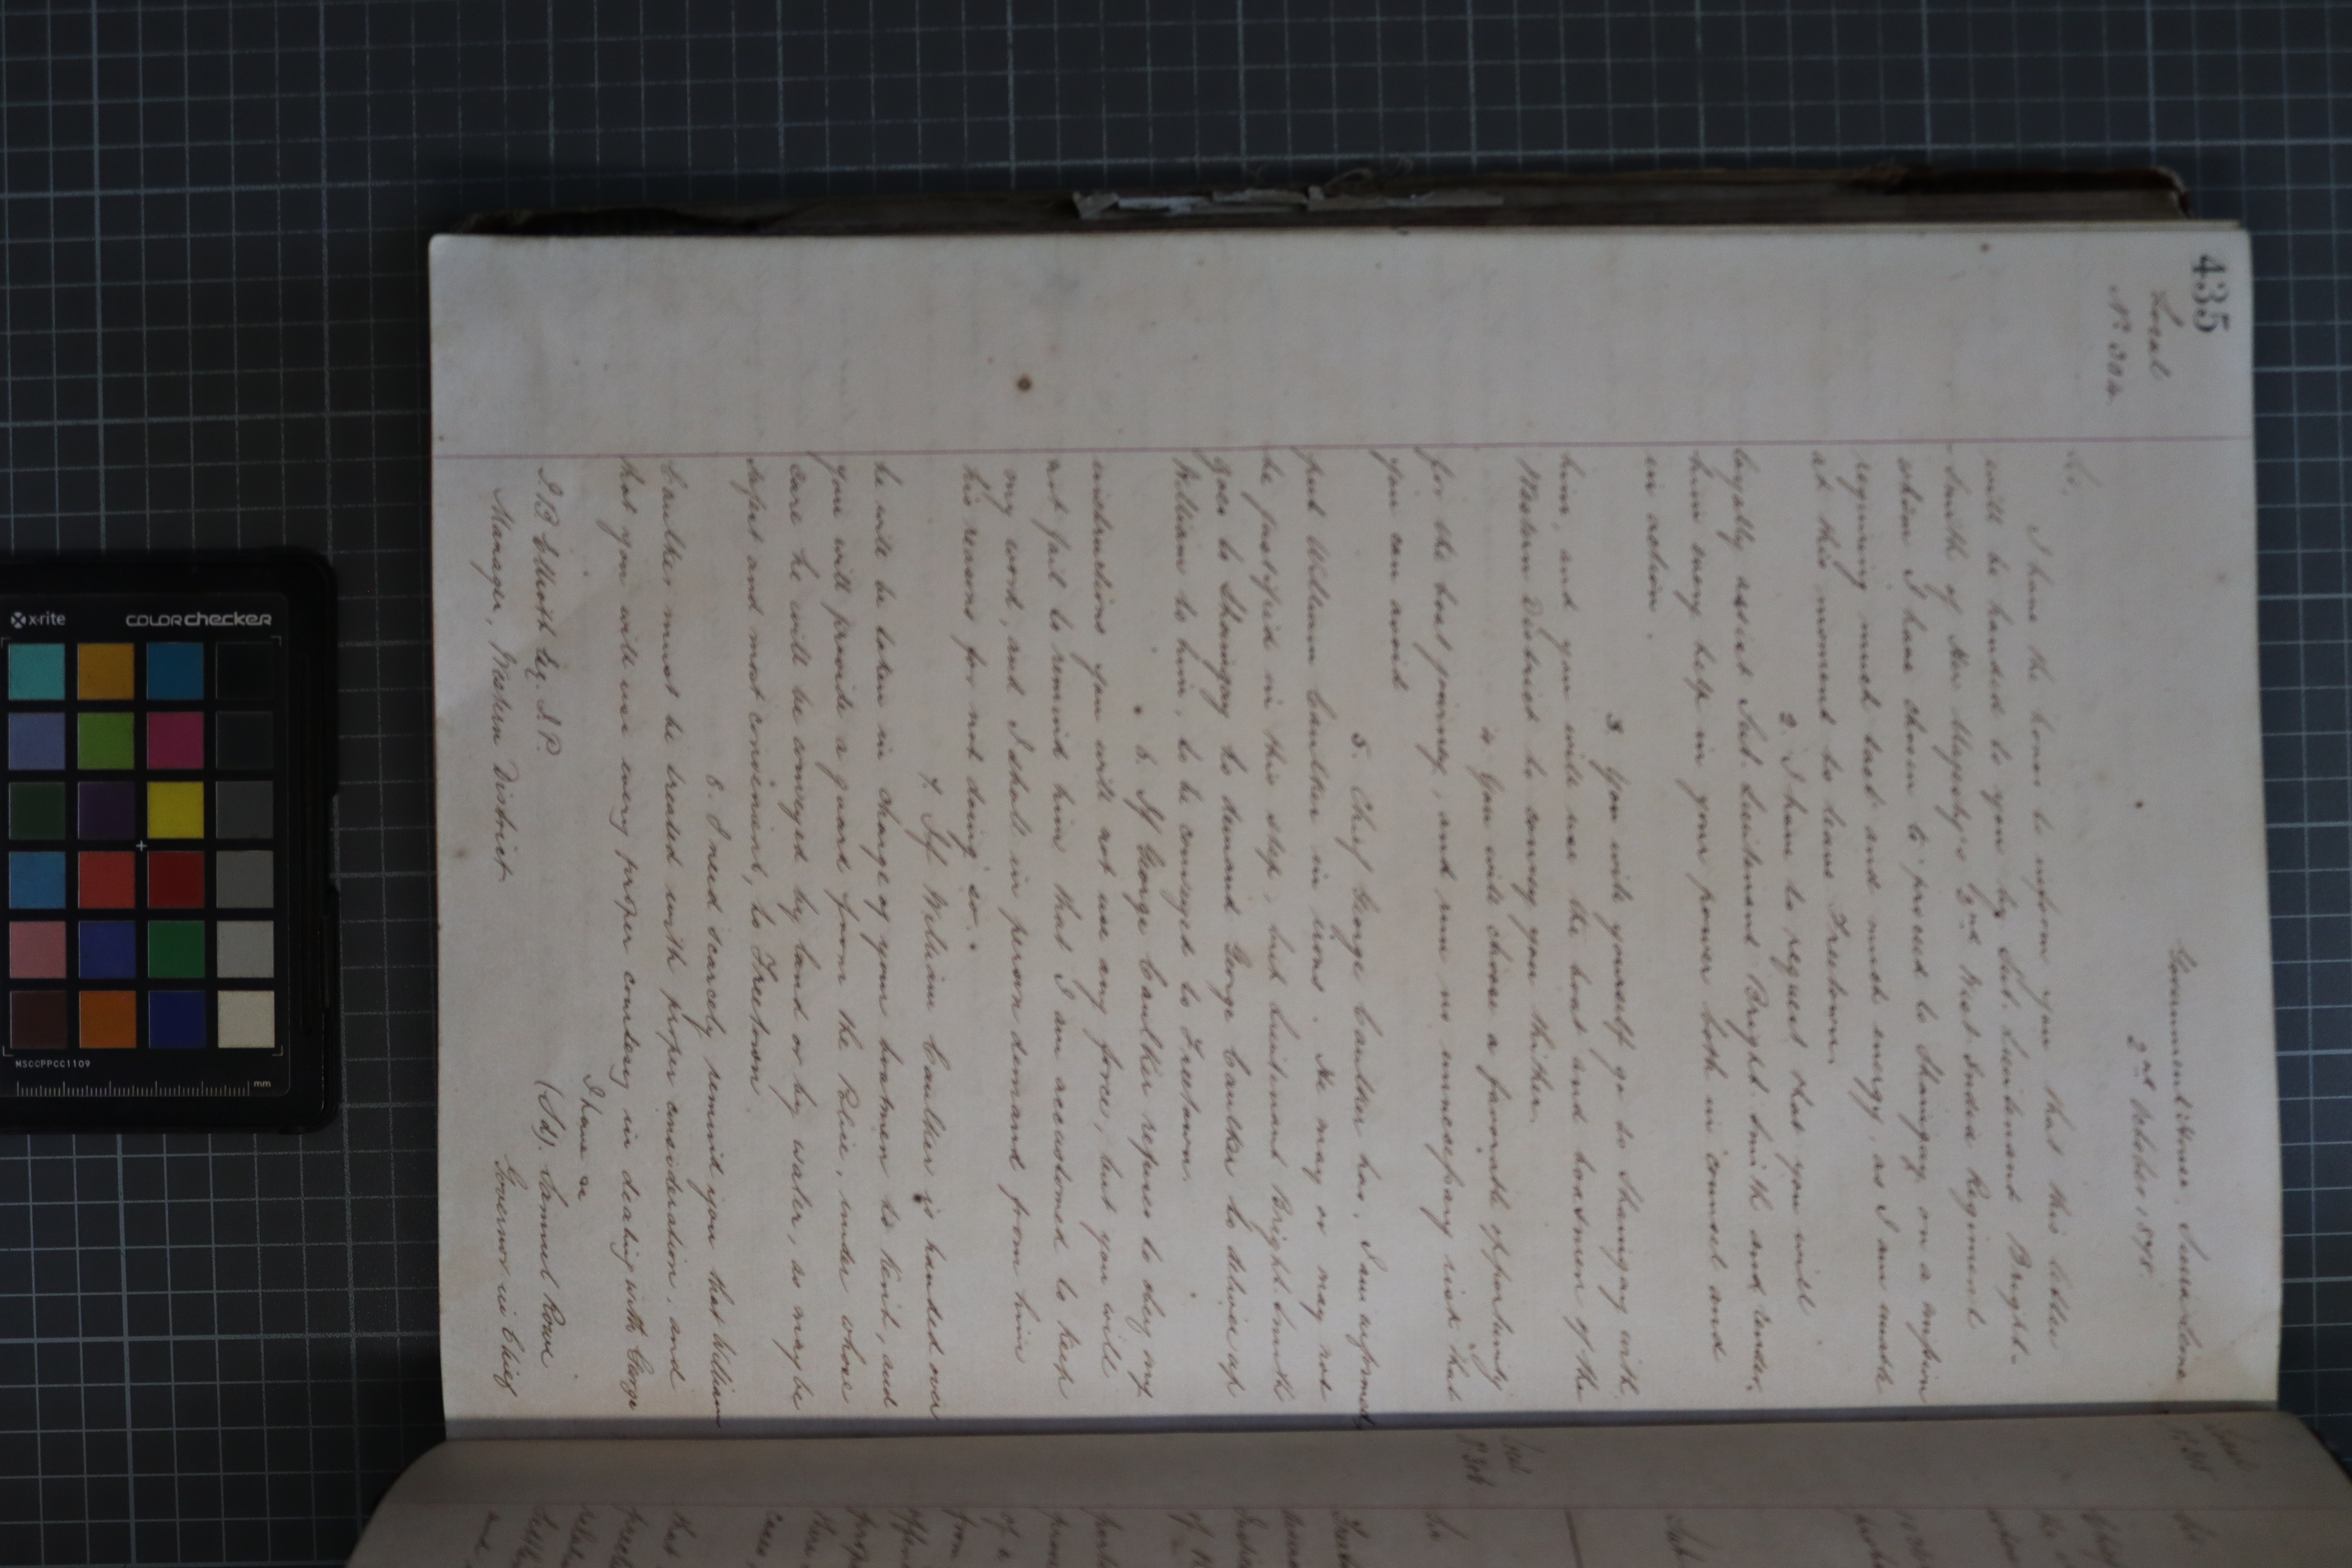 435
Local
No. 304
Government House, Sierra Leone
2nd October 1878.
Sir,
I have the honor to inform you that this letter
will be handed to you by Sub. Lieutenant Bright-
Smith of Her Majesty's 2nd West India Regiment
whom I have chosen to proceed to Shaingay on a mission
requiring much tact and much energy, as I am unable
at this moment to leave Freetown.
2. I have to request that you will
loyally assist Sub. Lieutenant Bright Smith and render
him every help in your power both in counsel and
in action.
3. You will yourself go to Shaingay with
him, and you will use the boat and boatmen of the
Western District to convey you thither.
4. You will choose a favorable opportunity
for the boat journey, and run no unnecessary risk that
you can avoid
5. Chief George Caulker has, I am informed,
put William Caulker in irons. He may or may not
be justified in this step, but Lieutenant Bright Smith
goes to Shaingay to demand George Caulker to deliver up
William to him, to be conveyed to Freetown.
6. If George Caulker refuses to obey my
instructions you will not use any force, but you will
not fail to remind him that I am accustomed to keep
my word, and I shall in person demand from him
his reasons for not doing so.
7. If William Caulker is handed over
he will be taken in charge of your boatmen to Kent, and
you will provide a guard from the Police, under whose
care he will be conveyed by land or by water, as may be
safest and most convenient, to Freetown
8. I need scarcely remind you that William
Caulker must be treated with proper consideration, and
that you will use every proper courtesy in dealing with George
I have &c
(Sd). Samuel Rowe
Governor in Chief
J B Elliott Esq. J.P.
Manager, Western District
Local
Sir